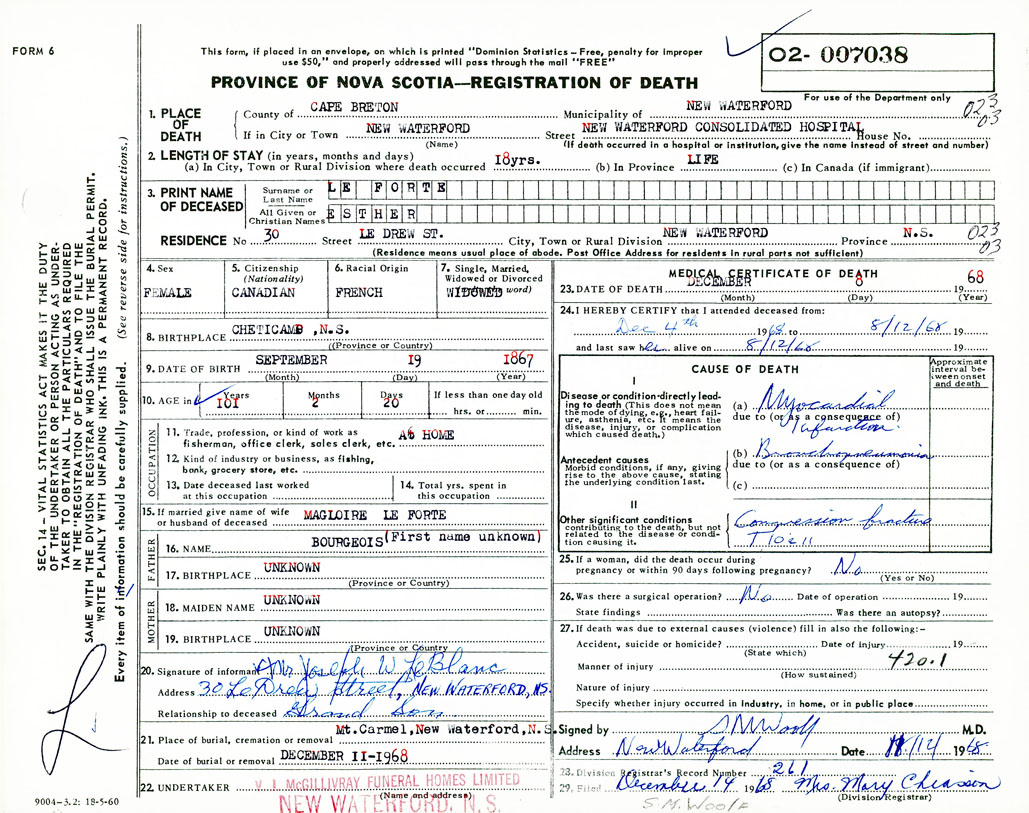 FORM 6
This form, if placed in an envelope, on which is printed "Dominion Statistics – Free, penalty for improper
use $50," and properly addressed will pass through the mail "FREE"
O2- 007038
PROVINCE OF NOVA SCOTIA—REGISTRATION OF DEATH
For use of the Department only
023
03
1. PLACE OF DEATH
County of CAPE BRETON Municipality of NEW WATERFORD
If in City or Town NEW WATERFORD Street NEW WATERFORD CONSOLIDATED HOSPITAL House No.
(Name) (If death occurred in a hospital or institution, give the name instead of street and number)
2. LENGTH OF STAY (in years, months and days)
(a) In City, Town or Rural Division where death occurred 18yrs. (b) In Province LIFE (c) In Canada (if immigrant)
3. PRINT NAME OF DECEASED
Surname or Last Name LE FORTE
All Given or Christian Names ESTHER
RESIDENCE No 30 Street LE DREW ST. City, Town or Rural Division NEW WATERFORD Province N.S. 023
03
(Residence means usual place of abode. Post Office Address for residents in rural parts not sufficient)
4. Sex
FEMALE
5. Citizenship
(Nationality)
CANADIAN
6. Racial Origin
FRENCH
7. Single, Married,
Widowed or Divorced
WIDOWED word)
8. BIRTHPLACE CHETICAMP ,N.S.
(Province or Country)
9. DATE OF BIRTH SEPTEMBER 19 1867
(Month) (Day) (Year)
10. AGE in Years Months Days If less than one day old
101 2 20 hrs. or min.
OCCUPATION
11. Trade, profession, or kind of work as
fisherman, office clerk, sales clerk, etc. At HOME
12. Kind of industry or business, as fishing,
bank, grocery store, etc.
13. Date deceased last worked
at this occupation
14. Total yrs. spent in
this occupation
15. If married give name of wife
or husband of deceased MAGLOIRE LE FORTE
FATHER
16. NAME BOURGEOIS (First name unknown)
17. BIRTHPLACE UNKNOWN
(Province or Country)
MOTHER
18. MAIDEN NAME UNKNOWN
19. BIRTHPLACE UNKNOWN
(Province or Country)
20. Signature of informant Mr Joseph W LeBlanc
Address 30 LeDrew Street, NEW WATERFORD, NS.
Relationship to deceased Grand Son
21. Place of burial, cremation or removal Mt.Carmel,New Waterford,N.S.
Date of burial or removal DECEMBER 11-1968
22. UNDERTAKER V. J. McGILLIVRAY FUNERAL HOMES LIMITED
(Name and address)
NEW WATERFORD, N. S.
9004-3.2: 18-5-60
MEDICAL CERTIFICATE OF DEATH
23. DATE OF DEATH DECEMBER 8 1968
(Month) (Day) (Year)
24. I HEREBY CERTIFY that I attended deceased from:
Dec 4th 1968 to 8/12/68 19
and last saw her alive on 8/12/68 19
CAUSE OF DEATH
Approximate
interval be-
tween onset
and death
I
Disease or condition directly lead-
ing to death (This does not mean
the mode of dying, e.g., heart fail-
ure, asthenia, etc. It means the
disease, injury, or complication
which caused death.)
(a) Myocardial
due to (or as a consequence of)
Infarction
Antecedent causes
Morbid conditions, if any, giving
rise to the above cause, stating
the underlying condition last.
(b) Bronchopneumonia
due to (or as a consequence of)
(c)
II
Other significant conditions
contributing to the death, but not
related to the disease or condi-
tion causing it.
Compression fracture
T 10 & 11
25. If a woman, did the death occur during
pregnancy or within 90 days following pregnancy? No
(Yes or No)
26. Was there a surgical operation? No Date of operation 19
State findings Was there an autopsy?
27. If death was due to external causes (violence) fill in also the following:–
Accident, suicide or homicide? Date of injury 19
(State which)
Manner of injury 420.1
(How sustained)
Nature of injury
Specify whether injury occurred in industry, in home, or in public place
Signed by S M Woolf M.D.
Address New Waterford Date 11/12 1968
28. Division Registrar's Record Number 261
29. Filed December 14 1968 Mrs. Mary Chiasson
(Division Registrar)
S.M. WOOLF
SEC. 14 – VITAL STATISTICS ACT MAKES IT THE DUTY
OF THE UNDERTAKER OR PERSON ACTING AS UNDER-
TAKER TO OBTAIN ALL THE PARTICULARS REQUIRED
IN THE "REGISTRATION OF DEATH" AND TO FILE THE
SAME WITH THE DIVISION REGISTRAR WHO SHALL ISSUE THE BURIAL PERMIT.
WRITE PLAINLY WITH UNFADING INK. THIS IS A PERMANENT RECORD.
Every item of information should be carefully supplied. (See reverse side for instructions.)